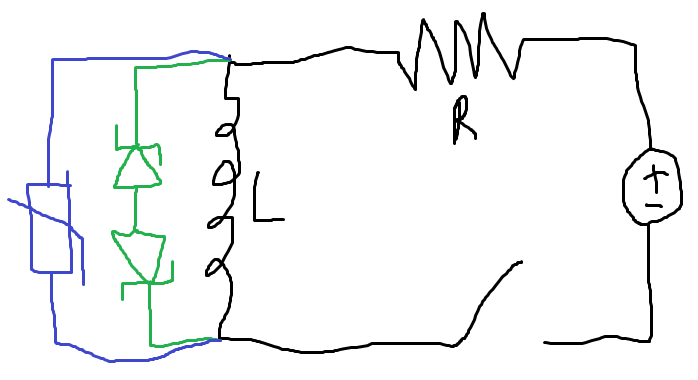 R
L
+
−